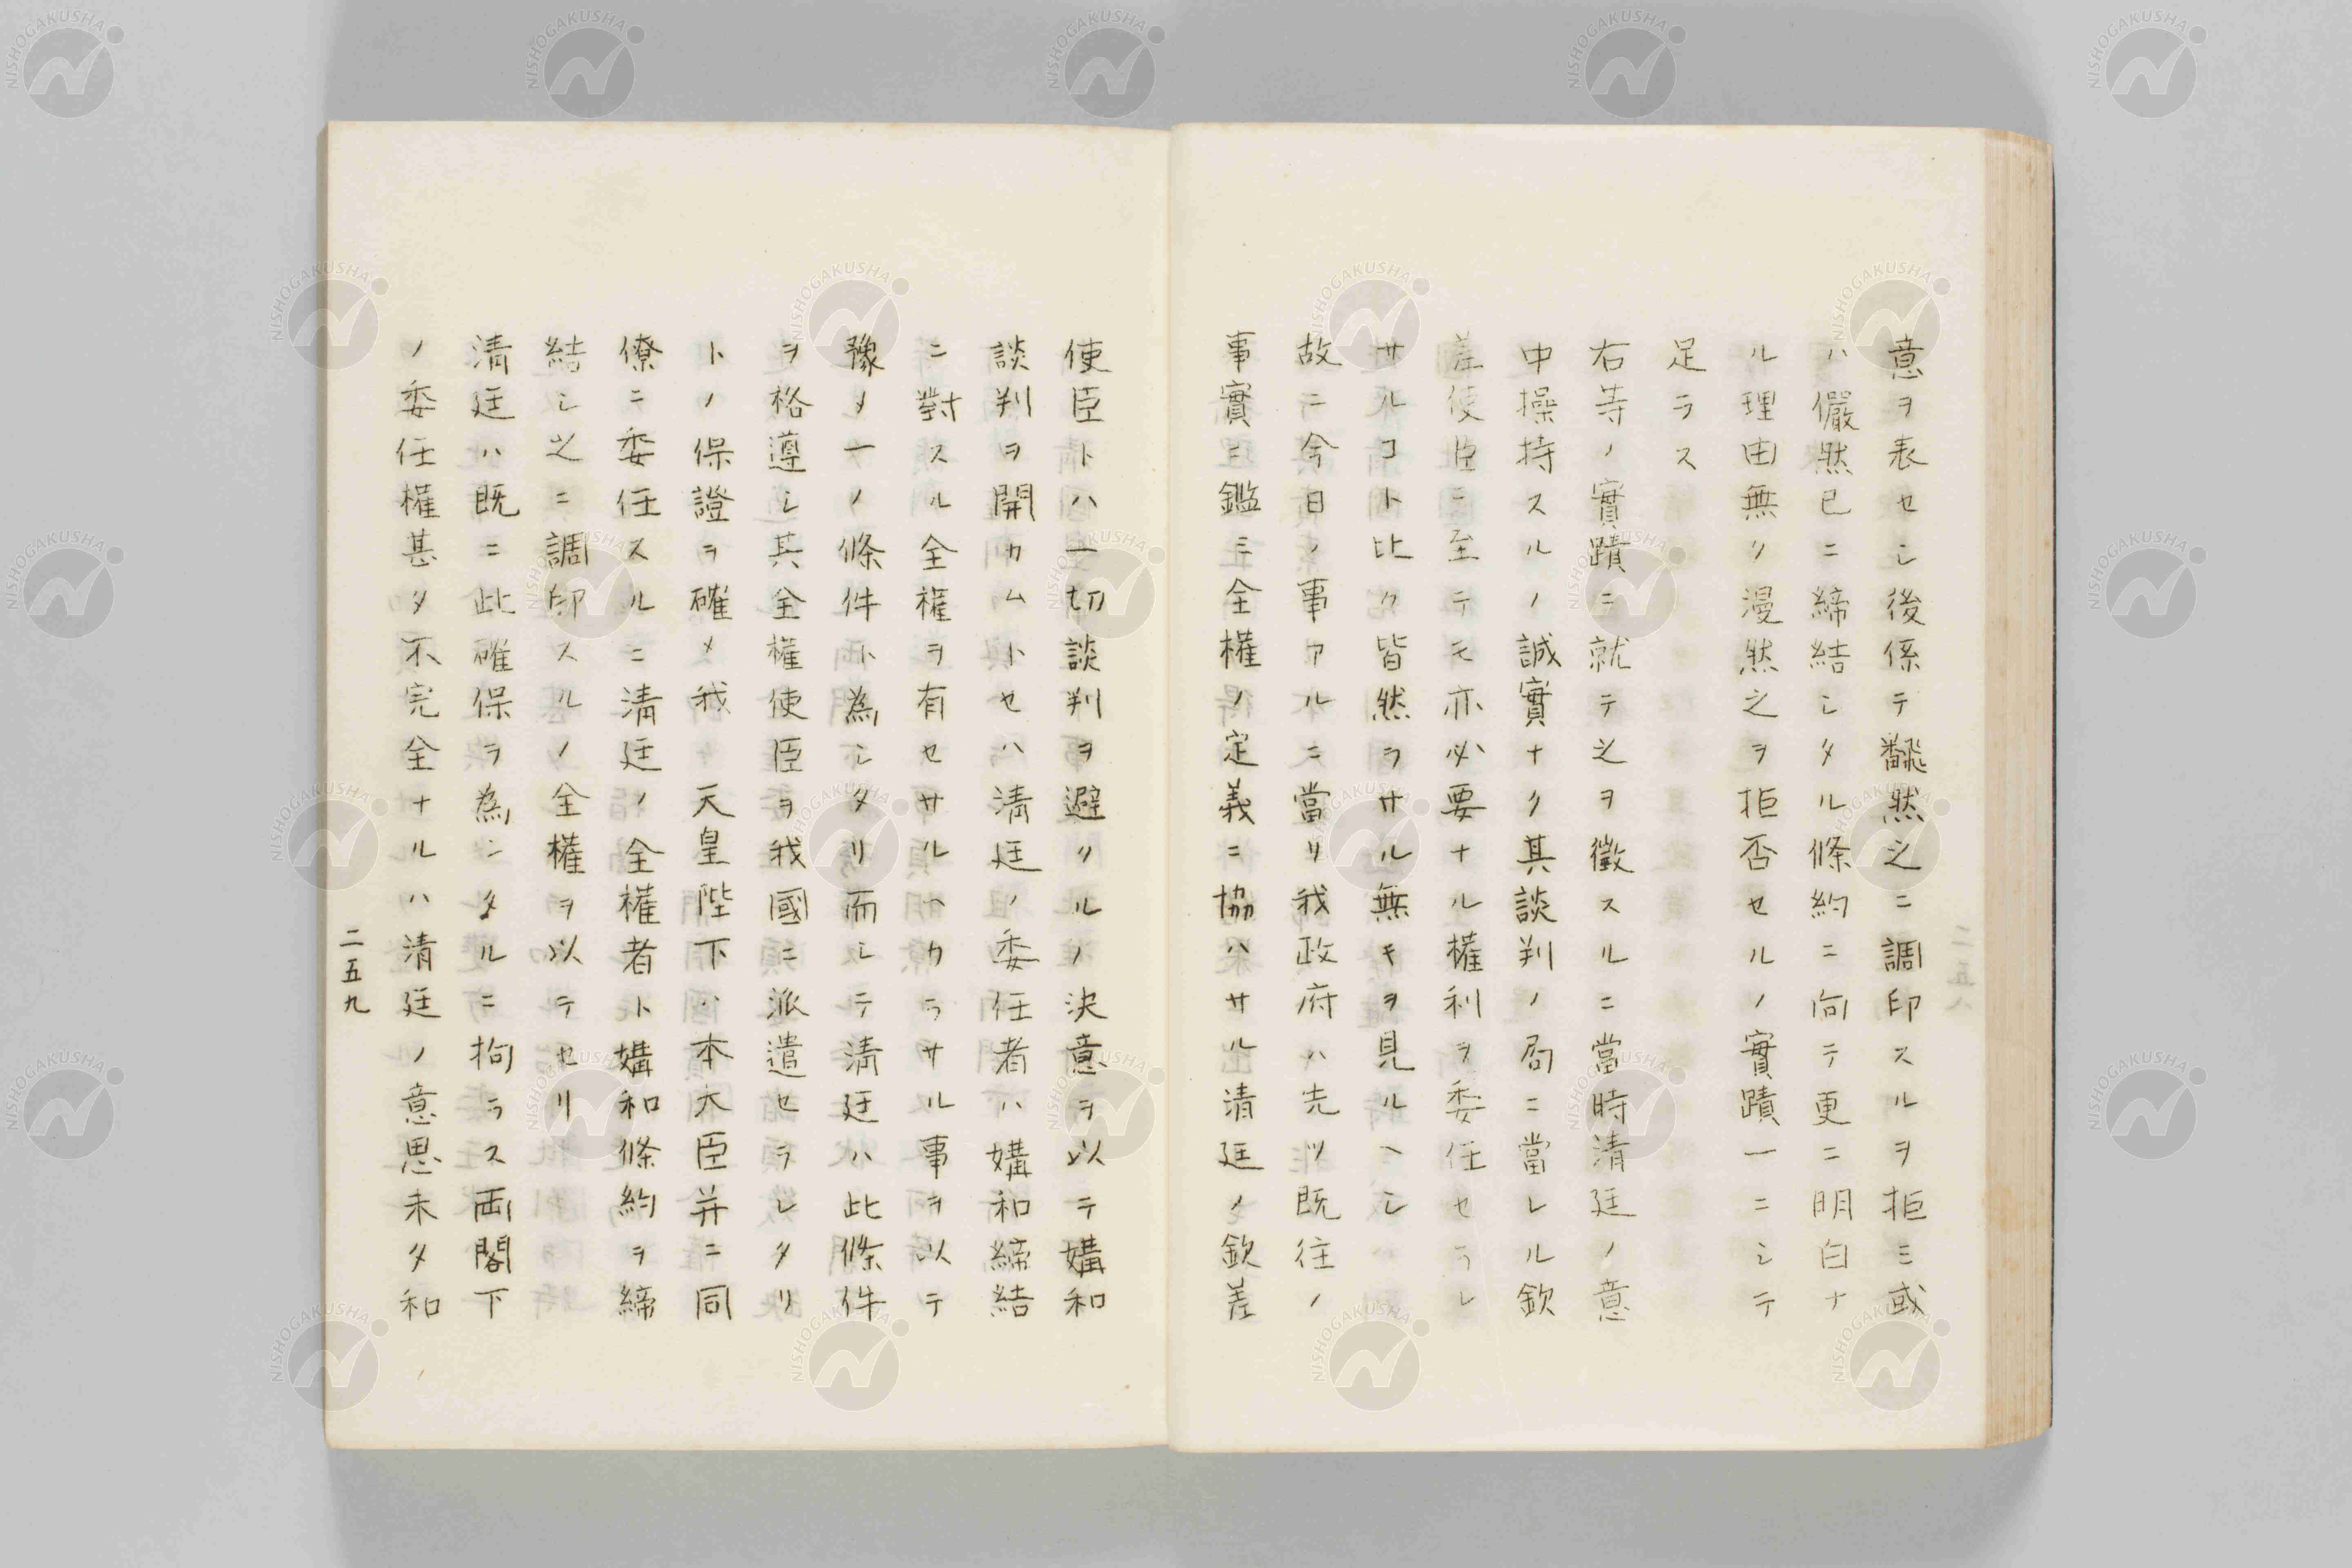 意ヲ表セシ後係テ飜然之ニ調印スルヲ拒ミ或
ハ儼然已ニ締結シタル條約ニ向テ更ニ明白ナ
ル理由無ク漫然之ヲ拒否セルノ實蹟一ニシテ
足ラス
右等ノ實蹟ニ就テ之ヲ徵スルニ當時清廷ノ意
中操持スルノ誠實ナク其談判ノ局ニ當レル欽
差使臣ニ至テモ亦必要ナル權利ヲ委任セラレ
サルコト比々皆然ラサル無キヲ見ルヘシ
故ニ今日ノ事アルニ當リ我政府ハ先ツ既往ノ
事實ニ鑑ミ全權ノ定義ニ協ハサル清廷ノ欽差
使臣トハ一切談判ヲ避クルノ決意ヲ以テ媾和
談判ヲ開カムトセハ清廷ノ委任者ハ媾和締結
ニ對スル全權ヲ有セサルヘカラサル事ヲ以テ
豫メ一ノ條件ト為シタリ而シテ清廷ハ此條件
ヲ格遵シ其全權使臣ヲ我國ニ派遣セラレタリ
トノ保證ヲ確メ我 天皇陛下ハ本大臣并ニ同
僚ニ委任スルニ清廷ノ全權者ト媾和條約ヲ締
結シ之ニ調印スルノ全權ヲ以テセリ
清廷ハ既ニ此確保ヲ為シタルニ拘ラス両閣下
ノ委任權甚タ不完全ナルハ清廷ノ意思未タ和
二五九
NISHOGAKUSHA